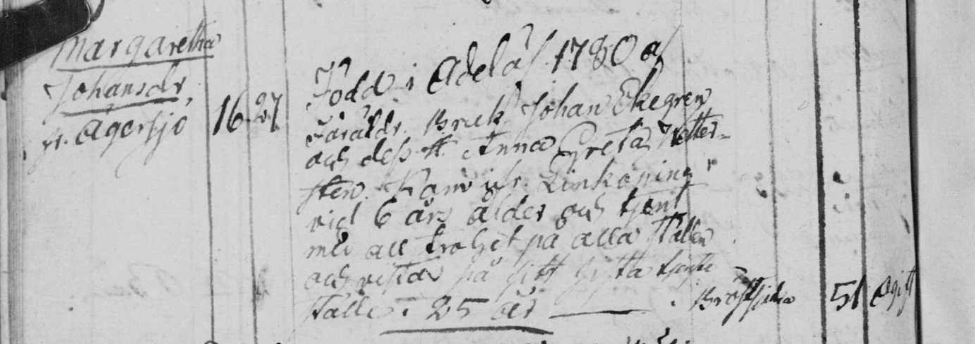 Margaretha
Johansdr,
fr. Agersjö
16 27
Född i Adelöf 1780 af
Föräldr. Bruk. Johan Ekegren
och dess H. Anna Greta Wetter-
sten. Kom ifr. Linköping
vid 6 års ålder och tjent
med all trohet på alla ställen
och vistas på sitt sista tjenste
ställe i 25 år
Bröstsjuka 51 Ogift